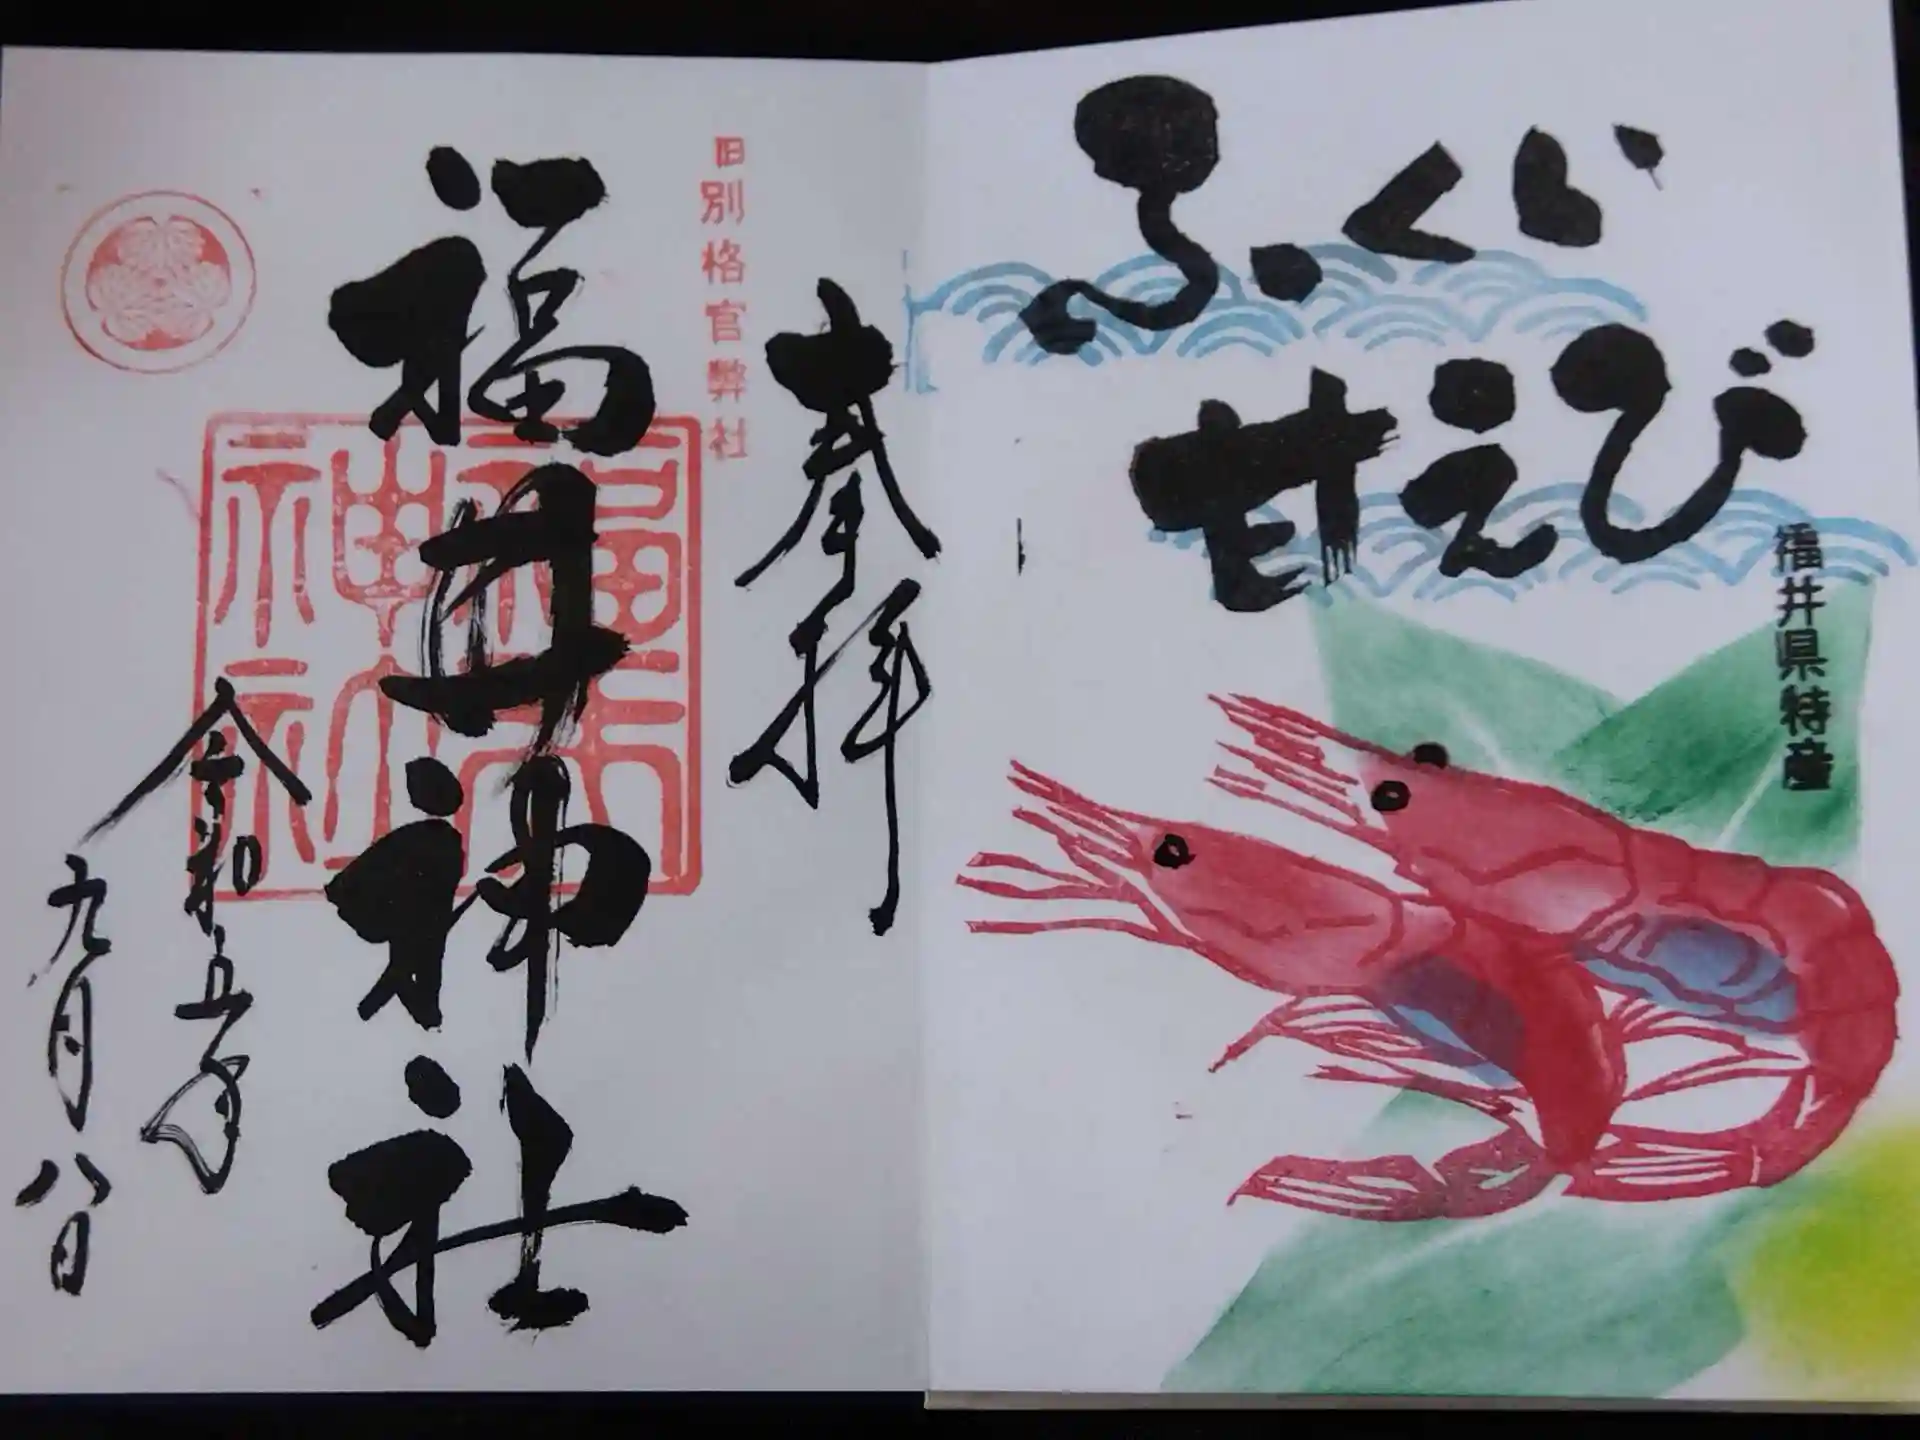 ふくい
甘えび
福井県特産
奉拝
旧別格官弊社
福井神社
福井神社
令和五年
九月八日